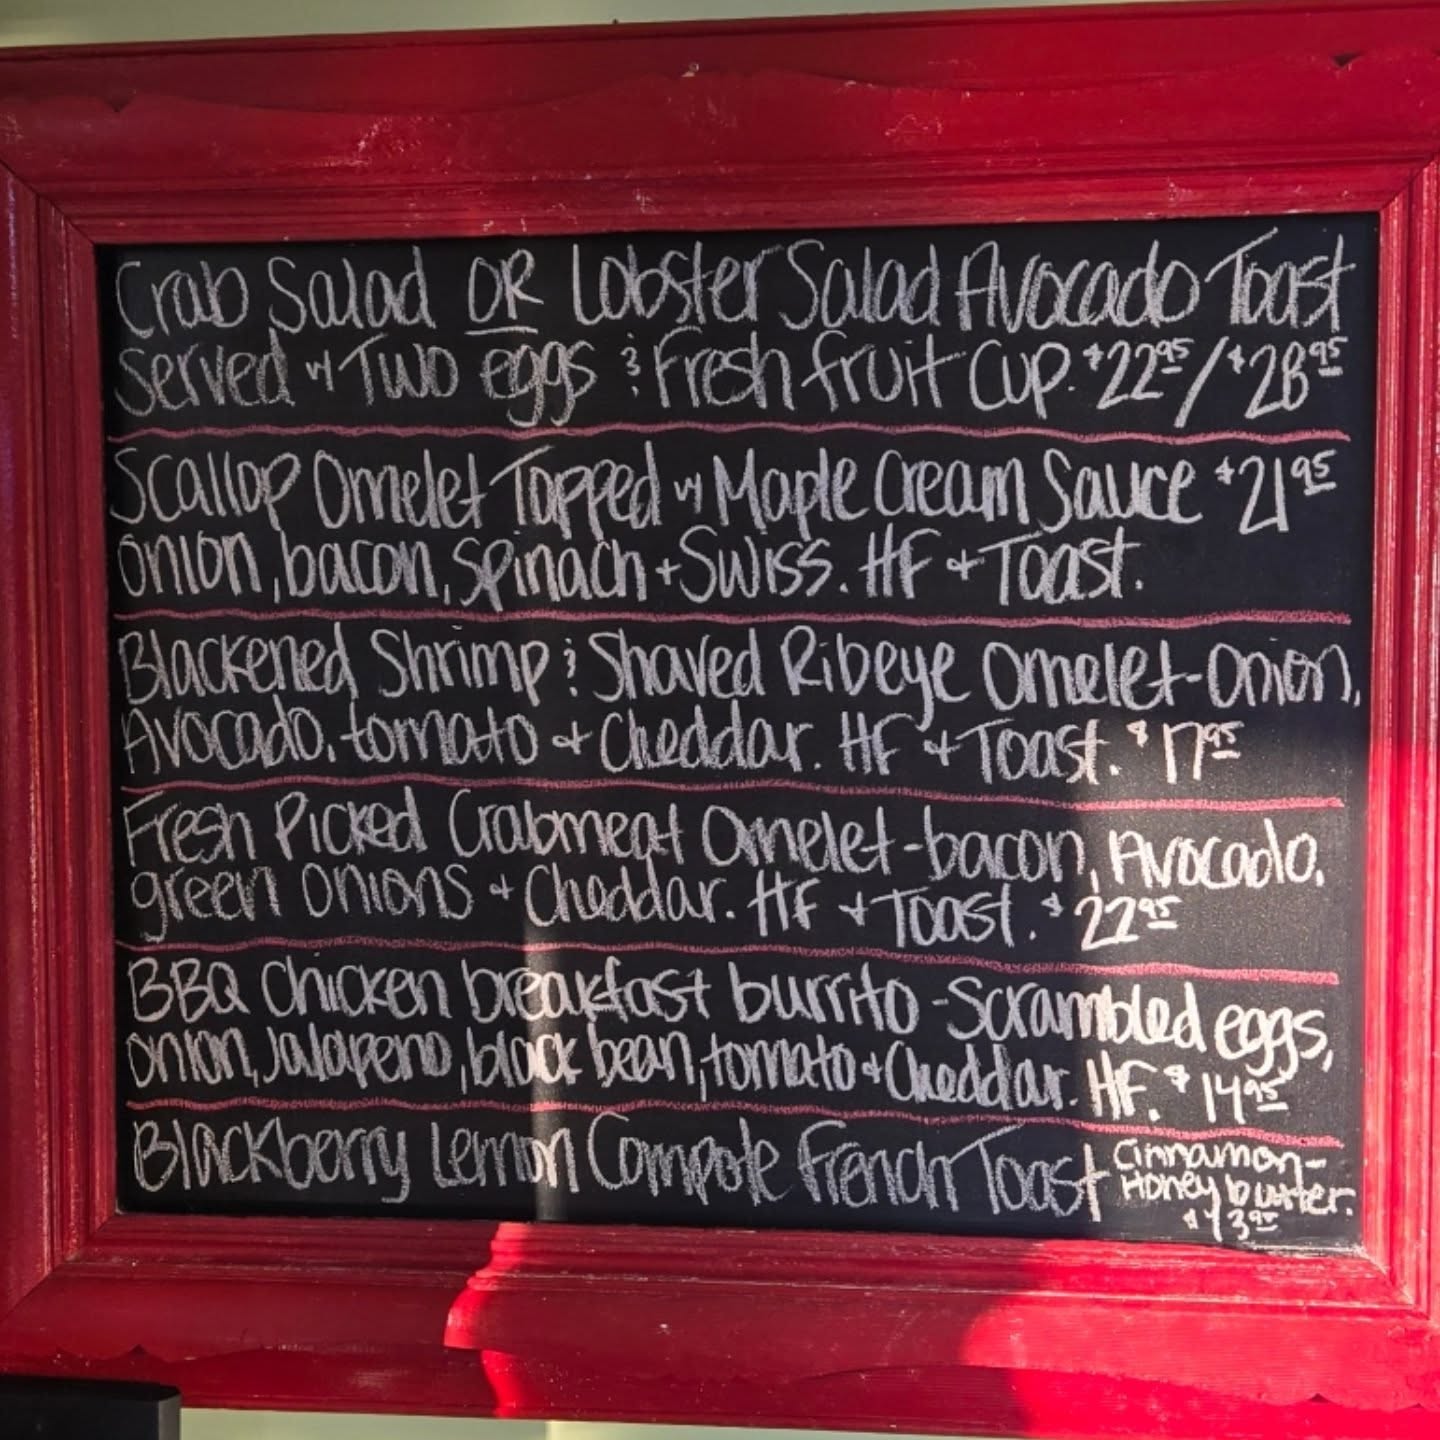 Crab Salad OR Lobster Salad Avocado Toast
Served w/ Two eggs & Fresh fruit Cup. $22.95/$28.95
Scallop Omelet Topped w/ Maple Cream Sauce $21.95
Onion, bacon, spinach + Swiss. HF + Toast.
Blackened Shrimp & Shaved Ribeye Omelet-Onion,
Avocado, tomato + Cheddar. HF + Toast. $17.95
Fresh Picked Crabmeat Omelet-bacon, Avocado,
green onions + Cheddar. HF + Toast. $22.95
BBQ Chicken breakfast burrito-Scrambled eggs,
onion, jalapeno, black bean, tomato + Cheddar. HF. $14.95
Blackberry Lemon Compote French Toast Cinnamon-
Honey butter.
$13.95